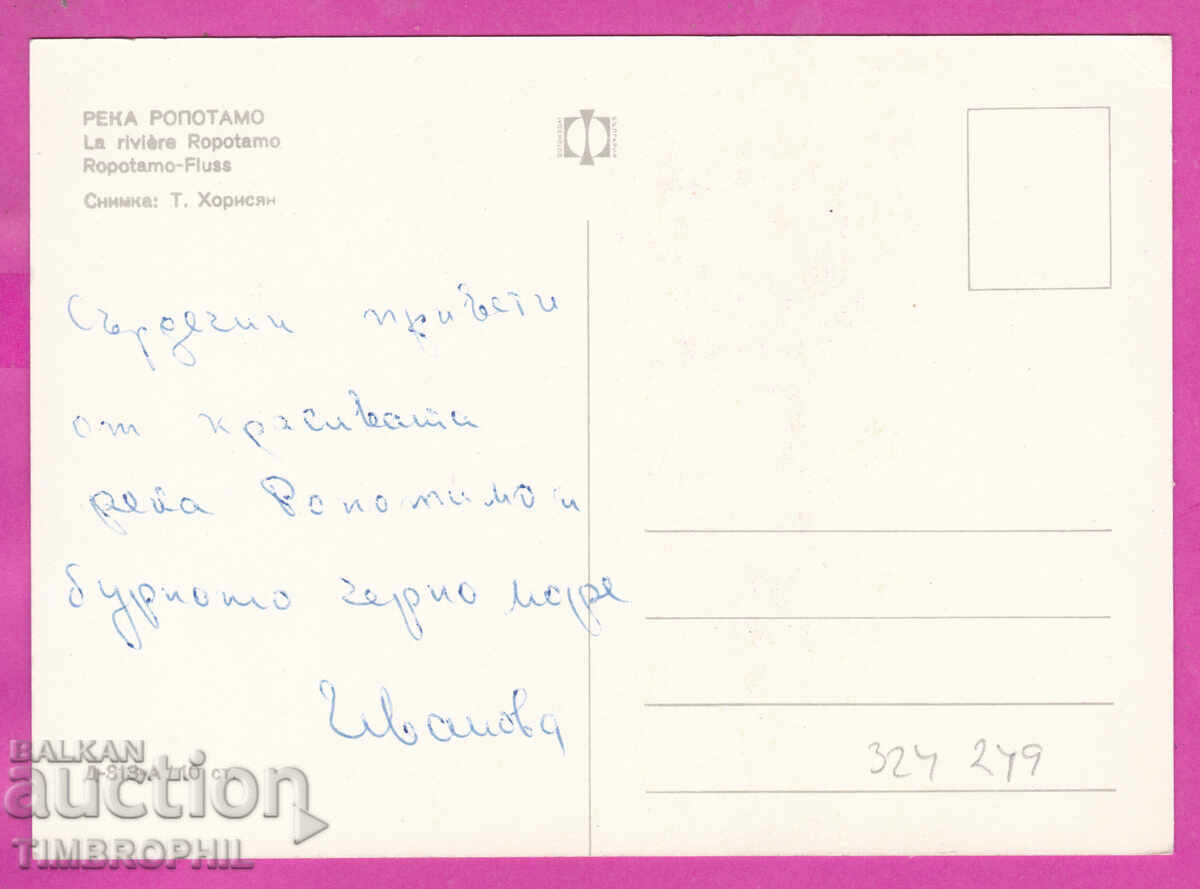 РЕКА РОПОТАМО
La rivière Ropotamo
Ropotamo-Fluss
Снимка: Т. Хорисян
ФОТОИЗДАТ
БЪЛГАРИЯ
Сърдечни
от красивата
река Ропотамо и
бурното черно море
Иванова
Д-813-А 10 ст.
324 249
BALKAN
auction
TIMBROPHIL